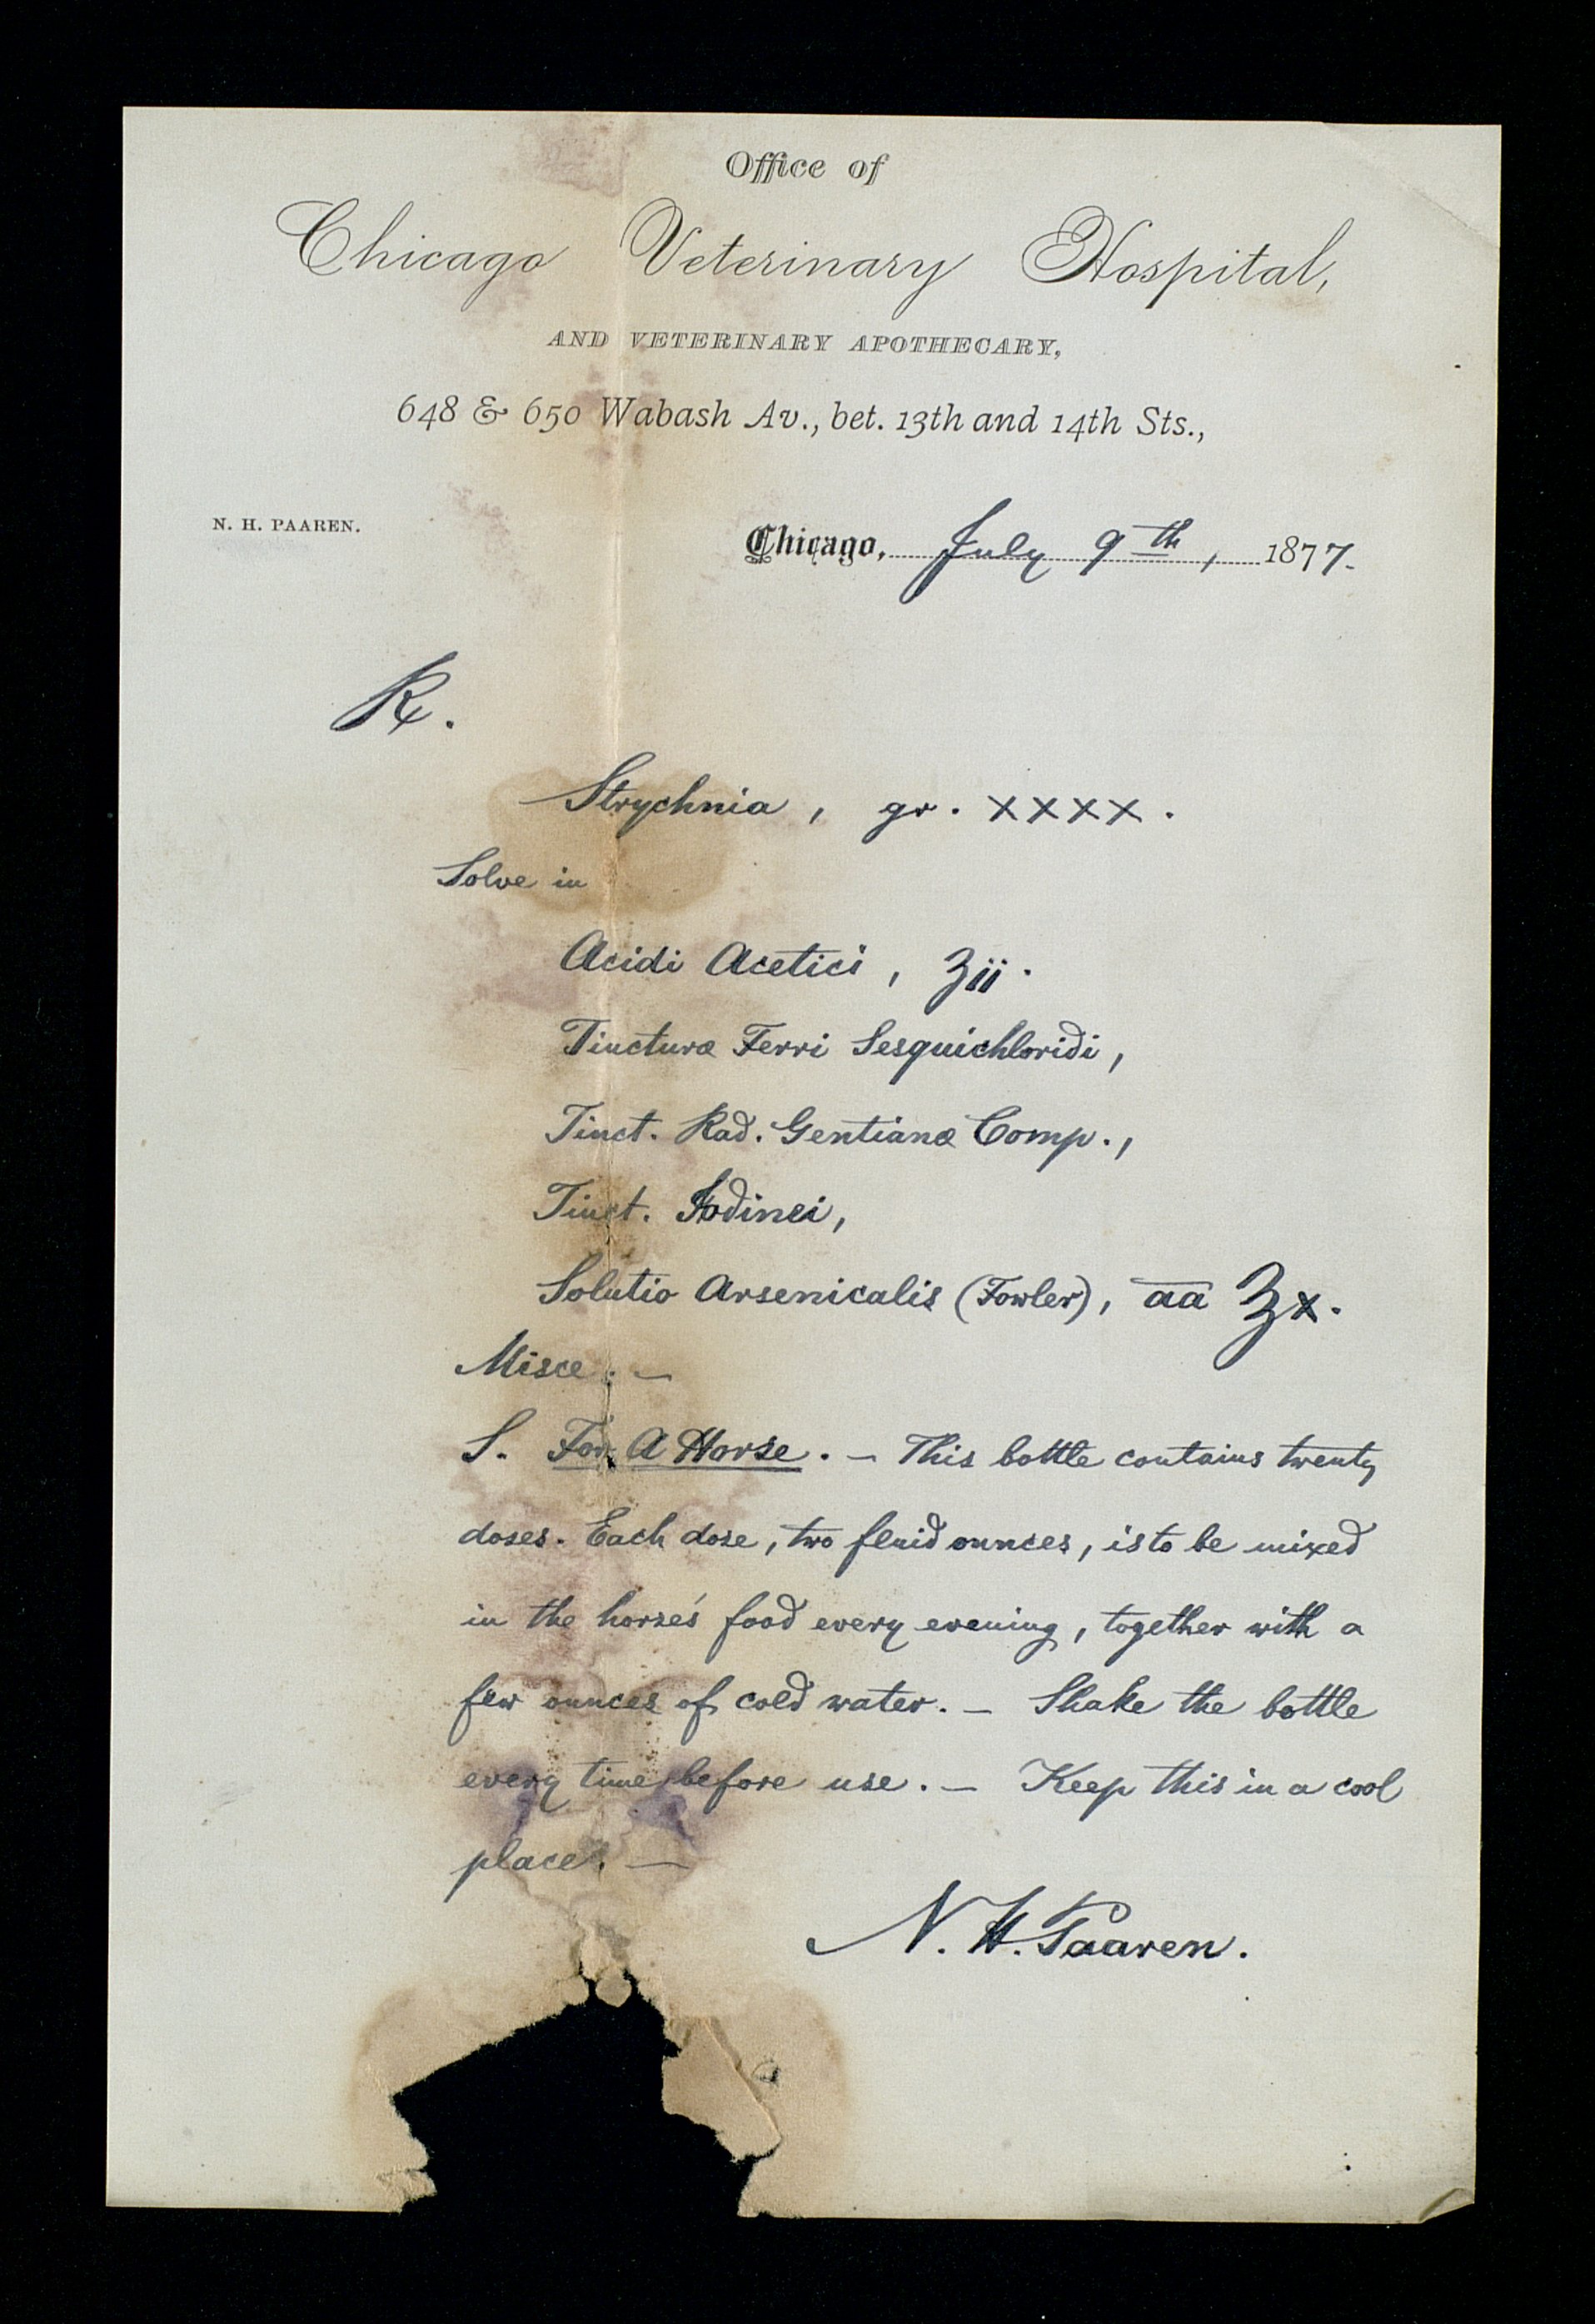 Office of
Chicago Veterinary Hospital,
AND VETERINARY APOTHECARY,
648 & 650 Wabash Av., bet. 13th and 14th Sts.,
N. H. PAAREN.
Chicago, July 9th, 1877.
℞.
Strychnia, gr. xxxx.
Solve in
Acidi Acetici, ʒii.
Tincturæ Ferri Sesquichloridi,
Tinct. Rad. Gentianæ Comp.,
Tinct. Iodinei,
Solutio Arsenicalis (Fowler), āā ℥x.
Misce. —
S. For A Horse. — This bottle contains twenty
doses. Each dose, two fluid ounces, is to be mixed
in the horse's food every evening, together with a
few ounces of cold water. — Shake the bottle
every time before use. — Keep this in a cool
place. —
N. H. Paaren.